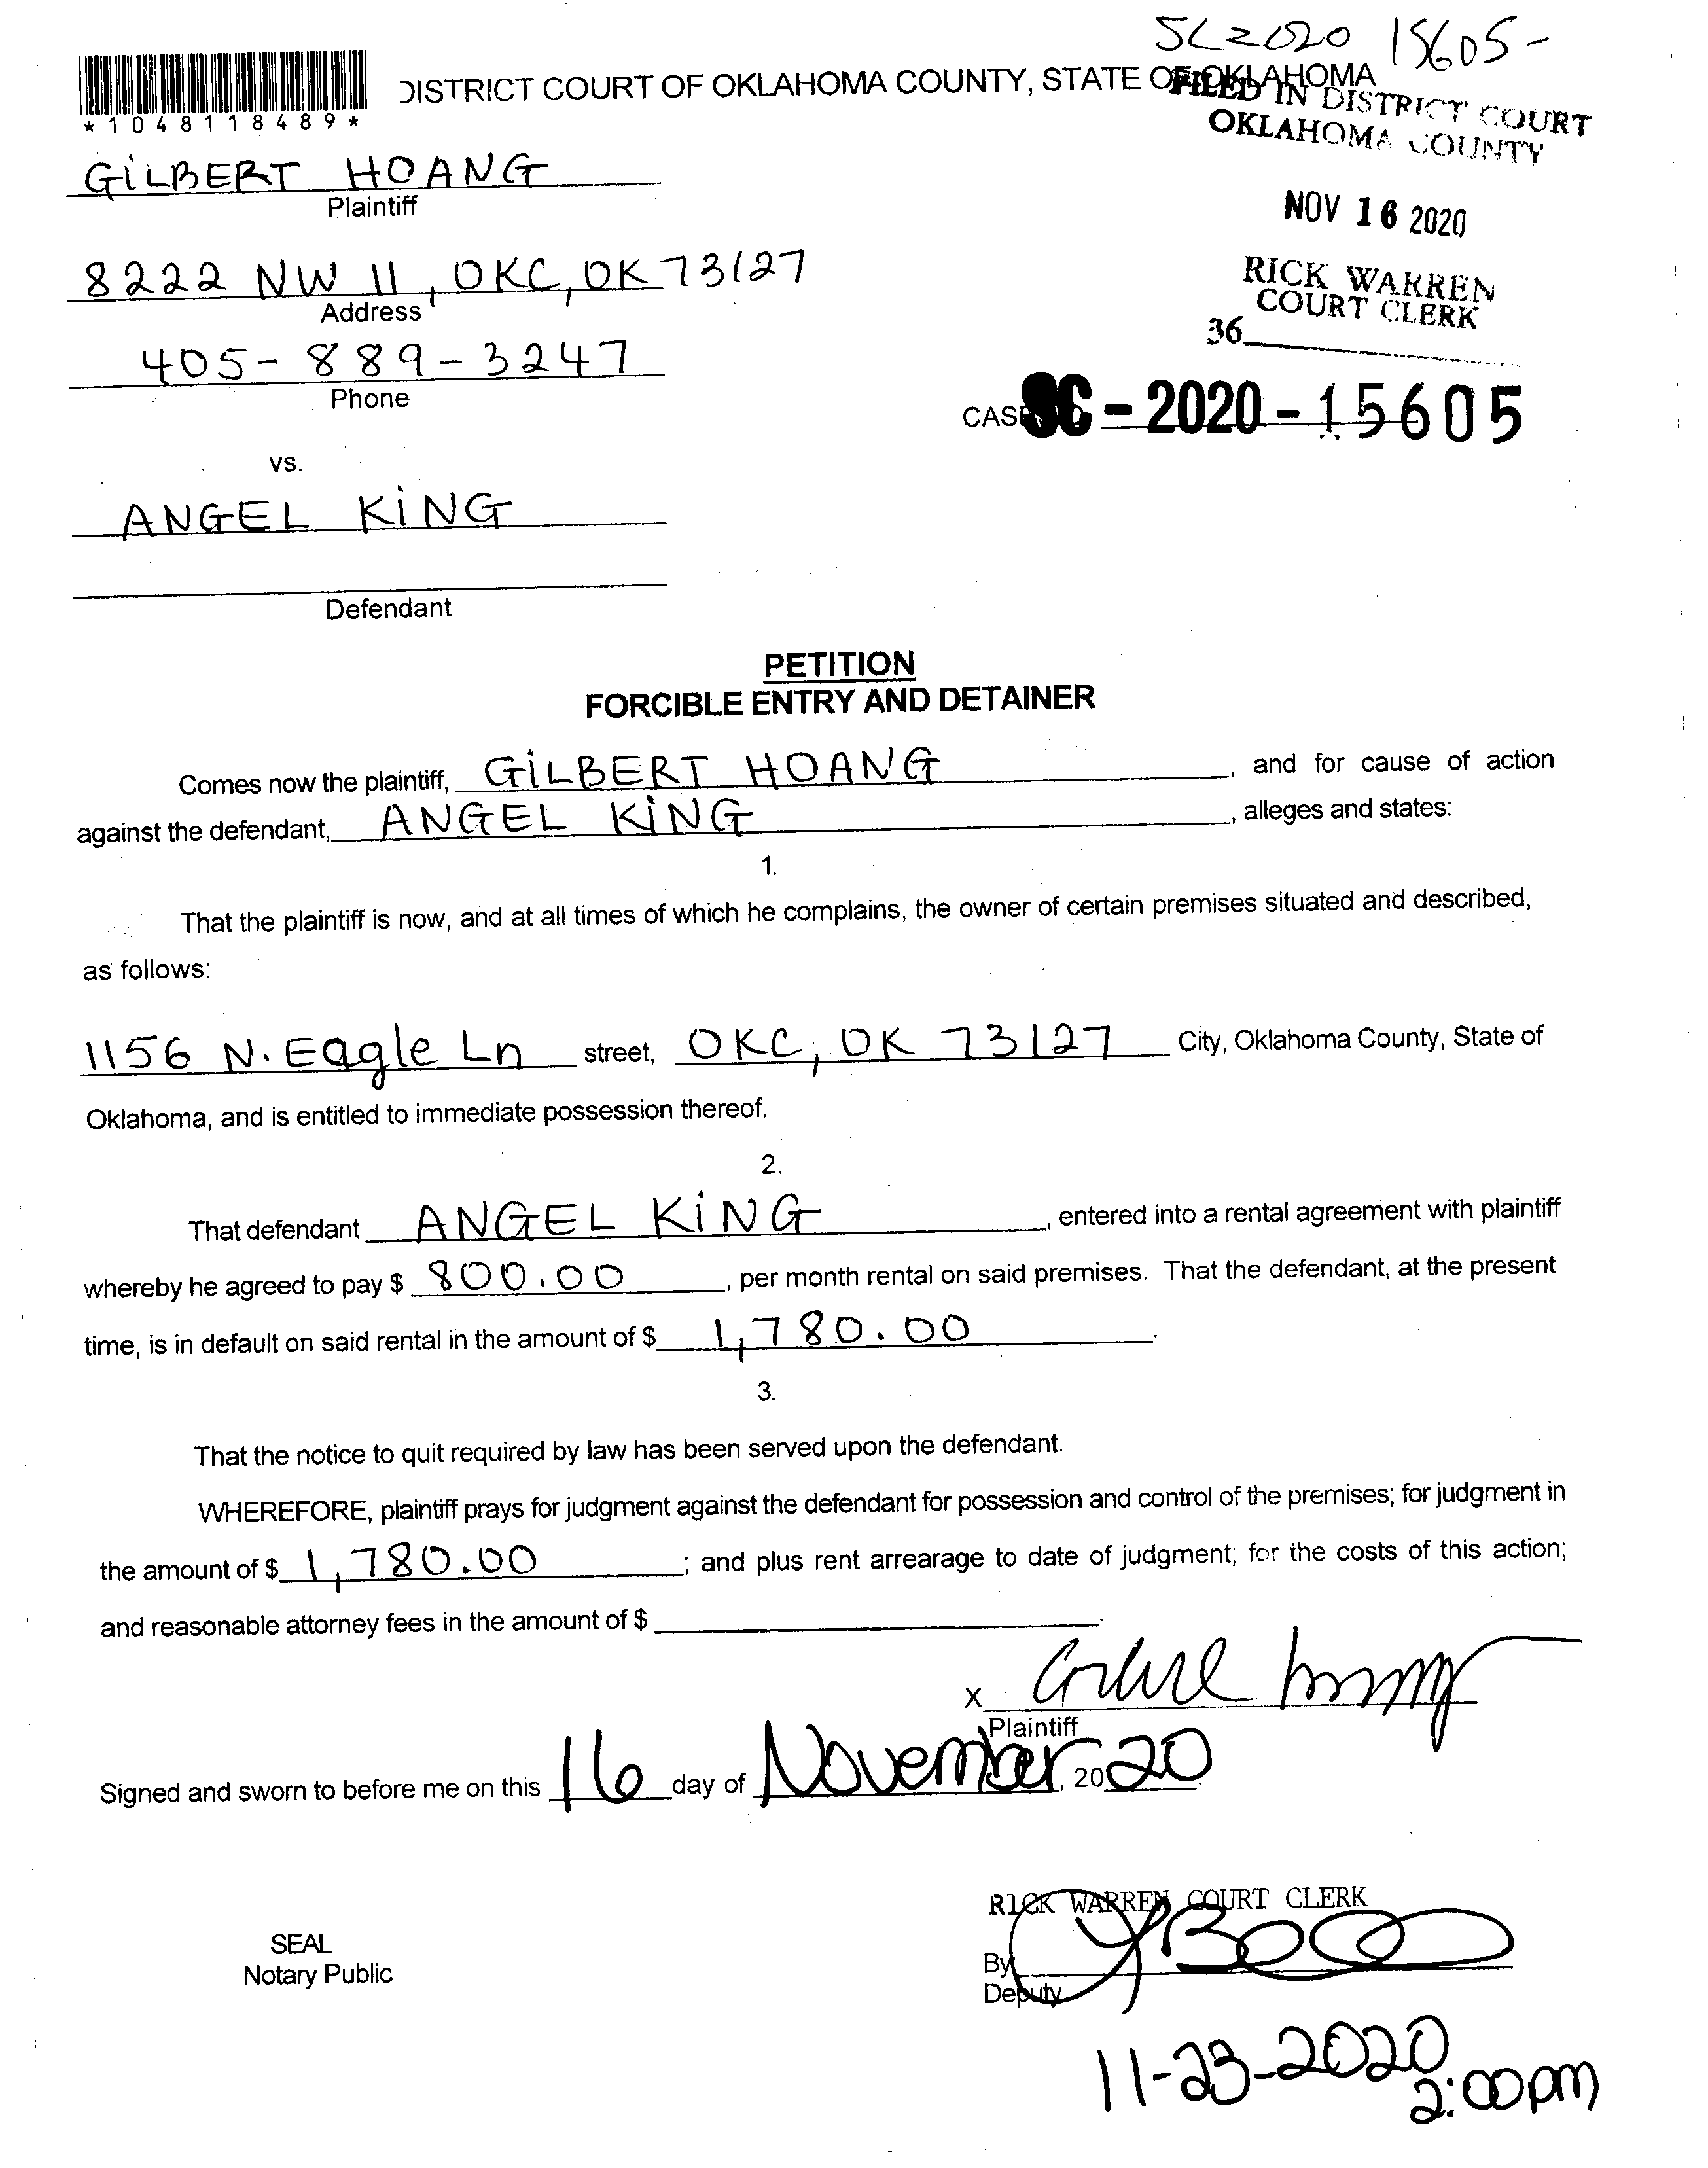 SC2020 15605-
DISTRICT COURT OF OKLAHOMA COUNTY, STATE OF OKLAHOMA
FILED IN DISTRICT COURT
OKLAHOMA COUNTY
*1048118489*
GILBERT HOANG
Plaintiff
NOV 16 2020
8222 NW 11, OKC, OK 73127
Address
RICK WARREN
COURT CLERK
36
405-889-3247
Phone
CASE SC-2020-15605
vs.
ANGEL KING
Defendant
PETITION
FORCIBLE ENTRY AND DETAINER
Comes now the plaintiff, GILBERT HOANG, and for cause of action
against the defendant, ANGEL KING, alleges and states:
1.
That the plaintiff is now, and at all times of which he complains, the owner of certain premises situated and described,
as follows:
1156 N. Eagle Ln street, OKC, OK 73127 City, Oklahoma County, State of
Oklahoma, and is entitled to immediate possession thereof.
2.
That defendant ANGEL KING, entered into a rental agreement with plaintiff
whereby he agreed to pay $ 800.00, per month rental on said premises. That the defendant, at the present
time, is in default on said rental in the amount of $ 1,780.00.
3.
That the notice to quit required by law has been served upon the defendant.
WHEREFORE, plaintiff prays for judgment against the defendant for possession and control of the premises; for judgment in
the amount of $ 1,780.00; and plus rent arrearage to date of judgment; for the costs of this action;
and reasonable attorney fees in the amount of $ .
X
Plaintiff
Signed and sworn to before me on this 16 day of November, 2020.
RICK WARREN COURT CLERK
SEAL
Notary Public
By
Deputy
11-23-2020
2:00pm